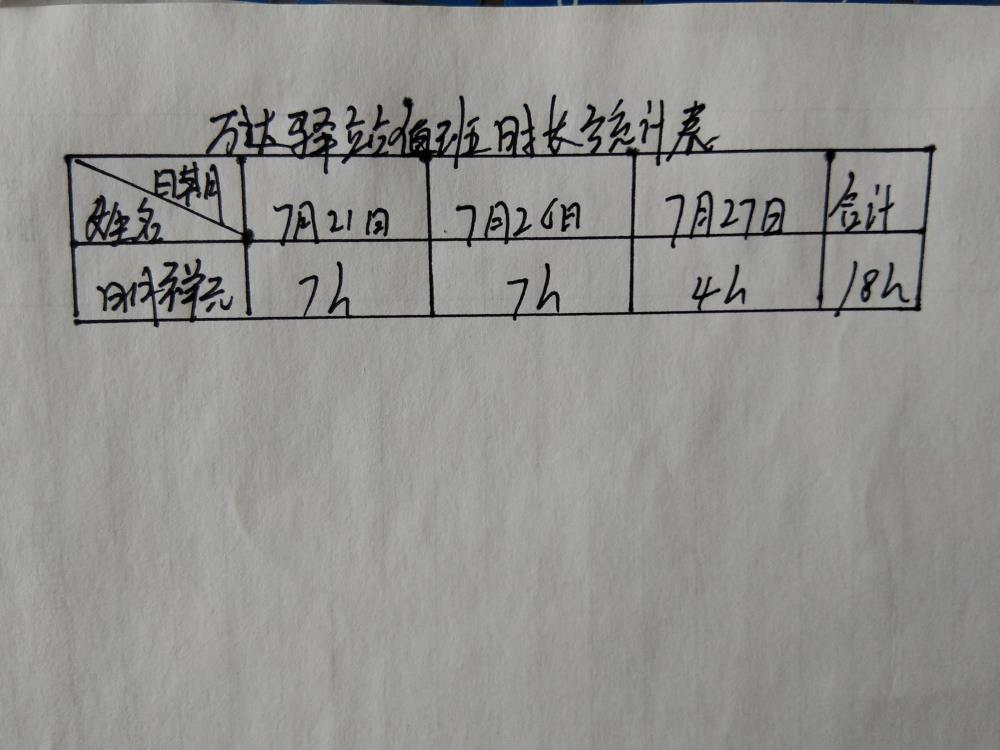 万达驿站值班时长统计表
日期
姓名 7月21日 7月26日 7月27日 合计
祥元 7h 7h 4h 18h